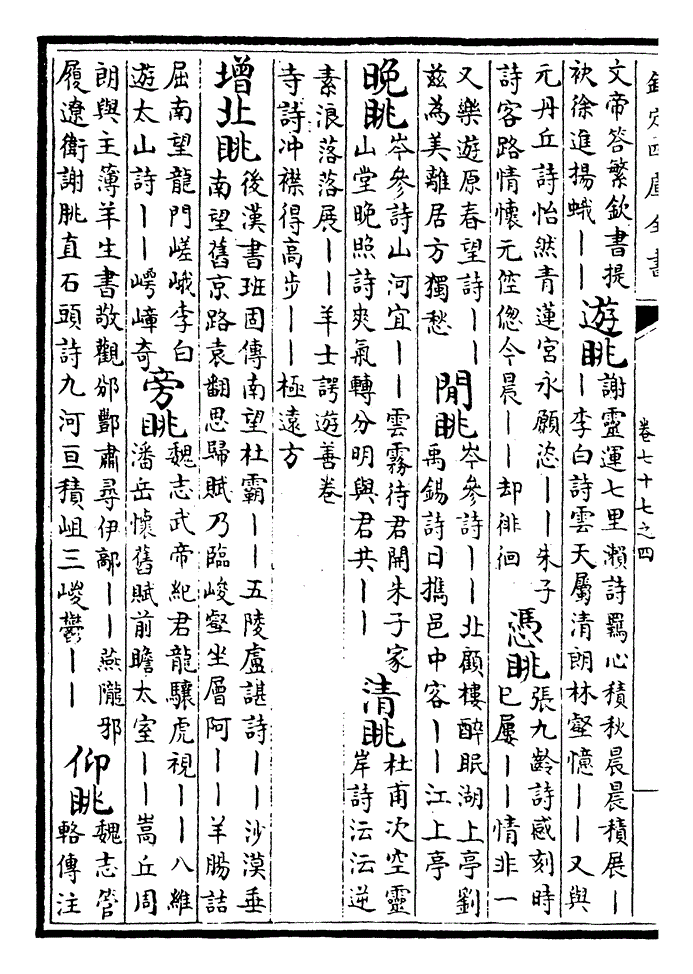 欽定四庫全書
卷七十七之四
文帝答繁欽書提
袂徐進揚蛾——
遊眺
謝靈運七里瀨詩羈心積秋晨晨積展—
—李白詩雲天屬清朗林壑憶——又與
元丹丘詩怡然青蓮宮永願恣——朱子
詩客路情懷元倥傯今晨——却徘徊
憑眺
張九齡詩感刻時
已屢——情非一
又樂遊原春望詩——
兹為美離居方獨愁
閒眺
岑參詩——北顧樓醉眠湖上亭劉
禹錫詩日攜邑中客——江上亭
晚眺
岑參詩山河宜——雲霧待君開朱子家
山堂晚照詩爽氣轉分明與君共——
清眺
杜甫次空靈
岸詩沄沄逆
素浪落落展——羊士諤遊善卷
寺詩冲襟得高步——極遠方
增北眺
後漢書班固傳南望杜霸——五陵盧諶詩——沙漠垂
南望舊京路袁翻思歸賦乃臨峻壑坐層阿——羊腸詰
屈南望龍門嵯峨李白
遊太山詩——崿嶂奇
旁眺
魏志武帝紀君龍驤虎視——八維
潘岳懷舊賦前瞻太室——嵩丘周
朗與主薄羊生書敬觀邠酆肅尋伊鄗——燕隴邪
履遼衛謝朓直石頭詩九河亘積岨三嵕鬱——
仰眺
魏志管
輅傳注